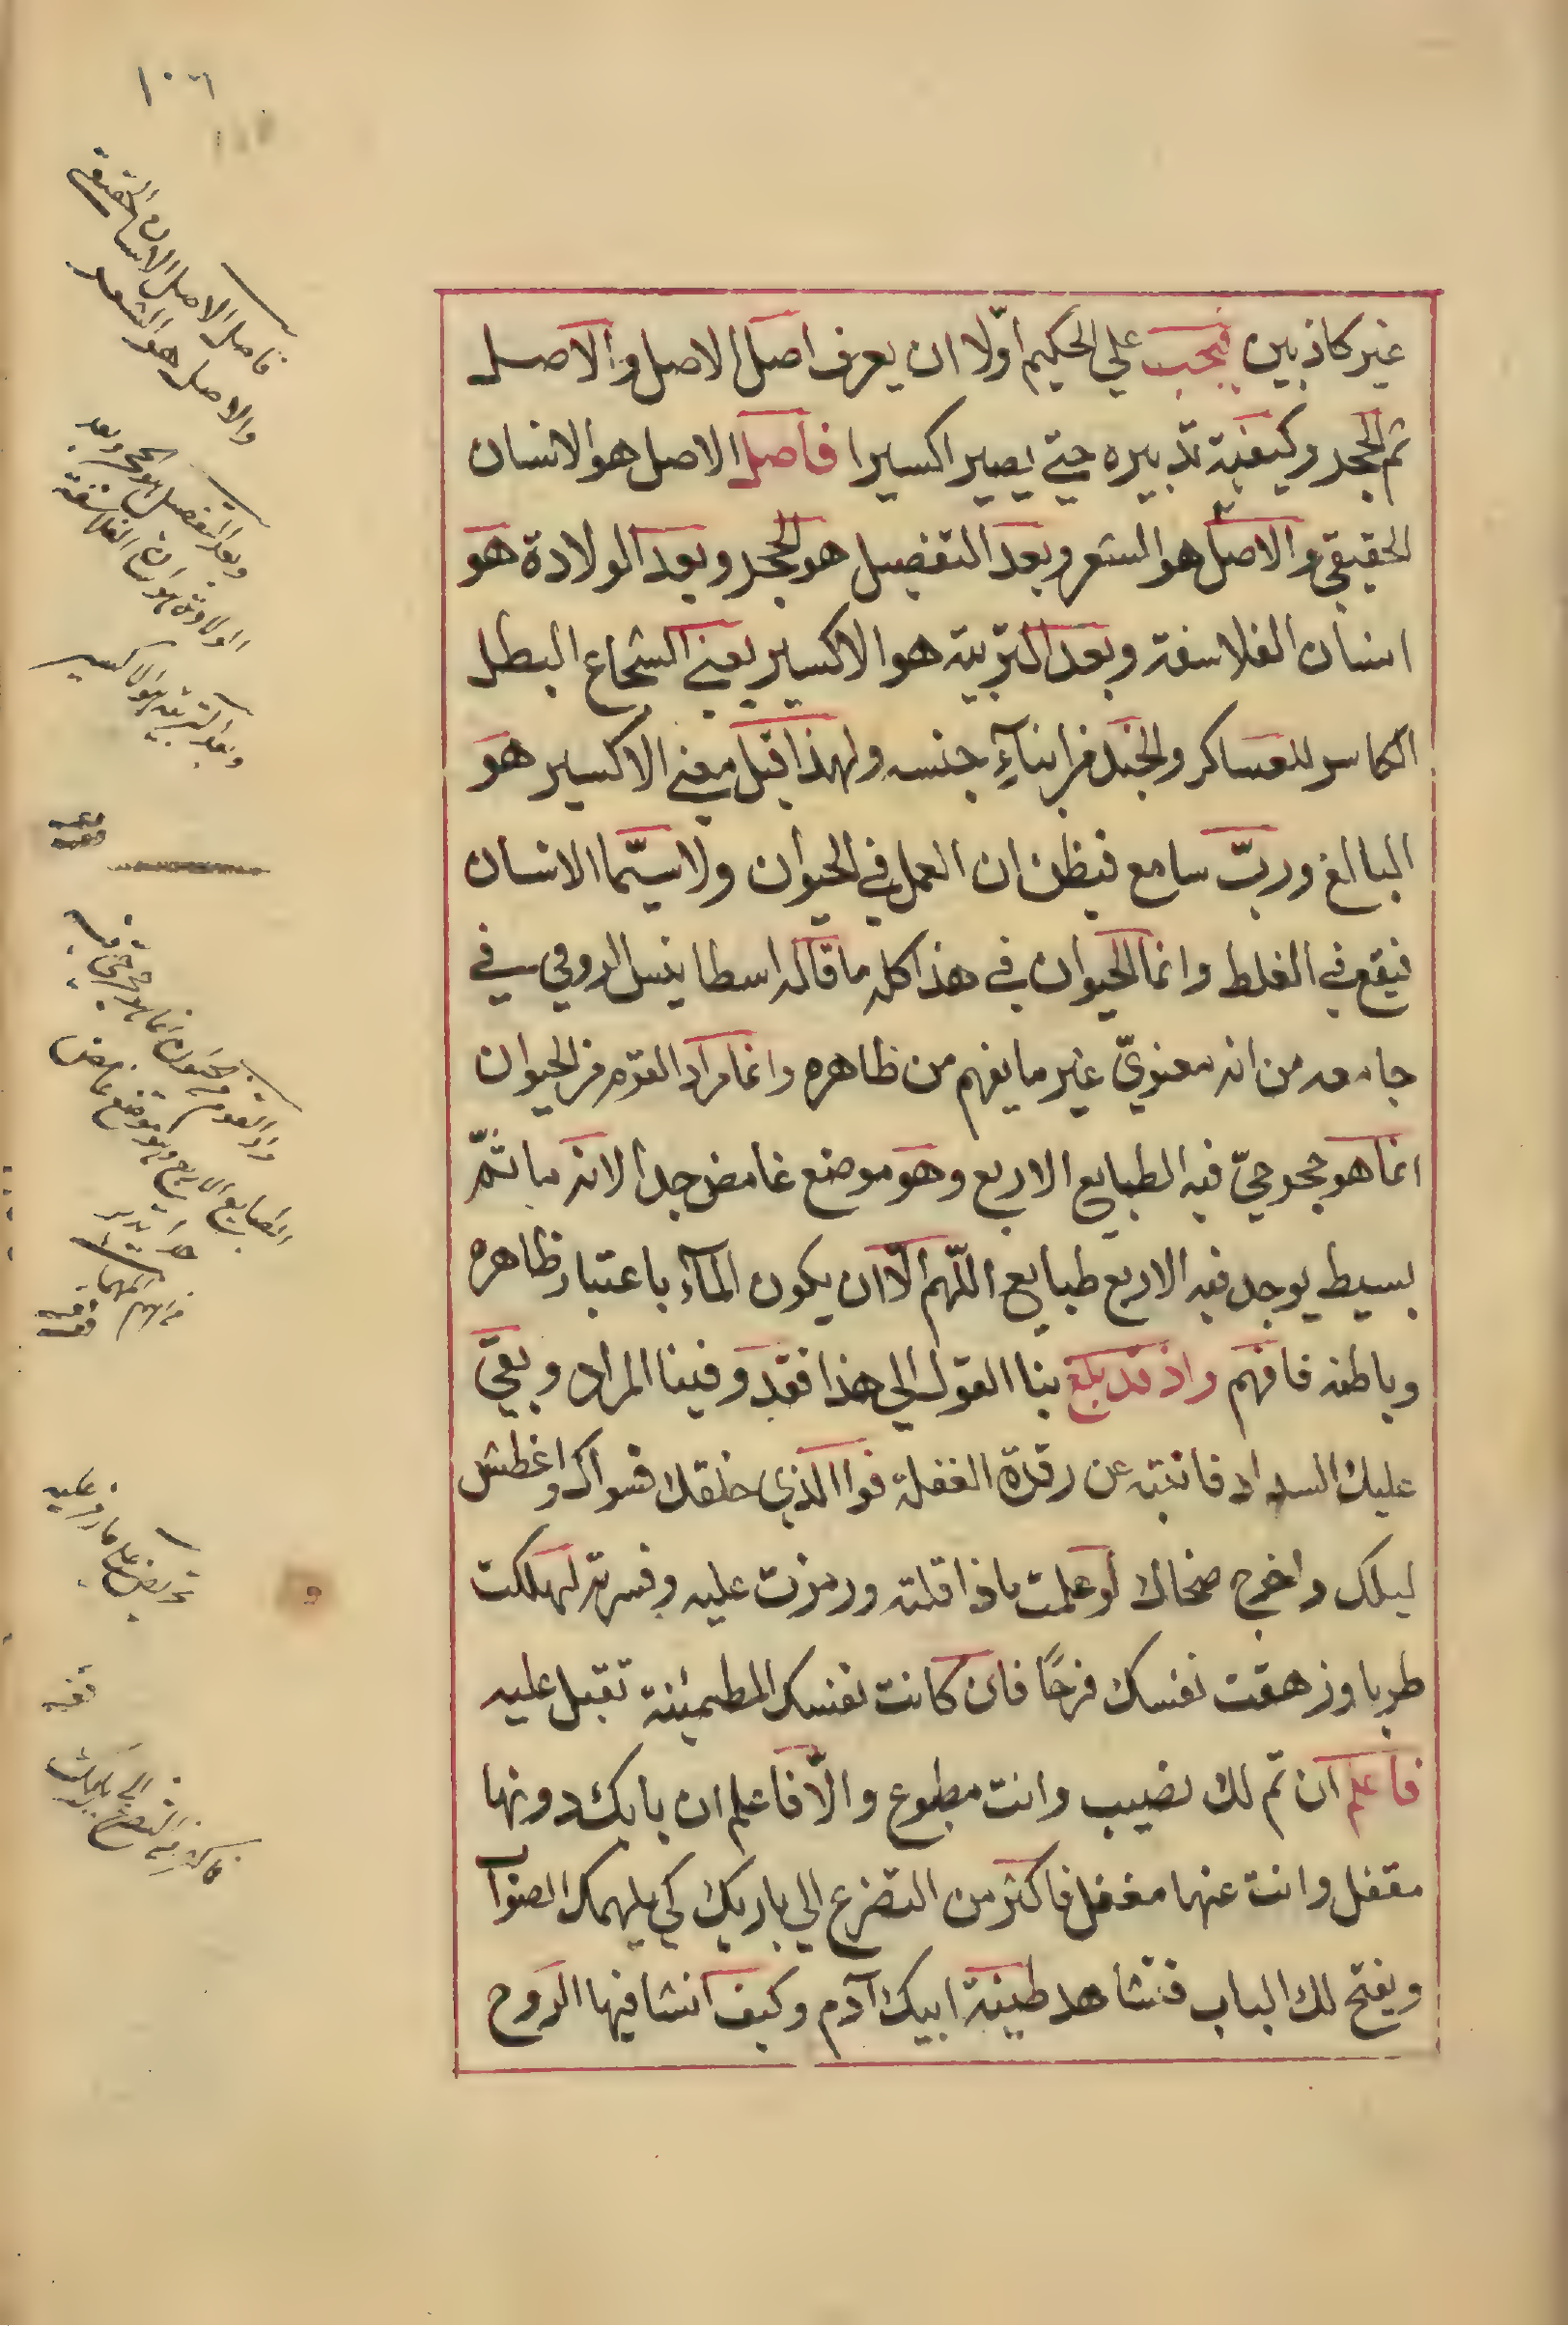 ١٠٦
غير كاذبين فيجب علي الحكيم اوّلا ان يعرف اصل الاصل والاصل
ثم الحجر وكيفية تدبيره حتي يصير اكسيرا فاصل الاصل هو الانسان
الحقيقي والاصل هو الشعر وبعد التفصيل هو الحجر وبعد الولادة هو
انسان الفلاسفة وبعد التربية هو الاكسير يعني الشجاع البطل
الكاسر للعساكر والجند من ابنآءِ جنسه ولهذا قيل معني الاكسير هو
البالغ وربّ سامع فيظن ان العمل في الحيوان ولا سيّما الانسان
فيقع في الغلط وانما الحيوان في هذا كله ما قاله اسطانيس الرومي في
جامعه من انه معنويّ غير ما يفهم من ظاهره وانما مراد القوم من الحيوان
انما هو حجر حيّ فيه الطبايع الاربع وهو موضع غامض جدا لانه ما ثمّ
بسيط يوجد فيه الاربع طبايع اللّهم الّا ان يكون المآء باعتبار ظاهره
وباطنه فافهم واذ قد بلغ بنا القول الي هذا فقد وفينا المراد وبقي
عليك السداد فانتبه عن رقدة الغفلة فوا الذي خلقك فسواك واغطش
ليلك واخرج ضحاك لو علمت ماذا قلته ورمزت عليه وفسرته لهلكت
طربا وزهقت نفسك فرحًا فان كانت نفسك المطمئنة تقبل عليه
فاعلم ان ثم لك نصيب وانت مطبوع والّا فاعلم ان بابك دونها
مقفل وانت عنها مغفل فاكثر من التضرع الي باريك كي يلهمك الصواب
ويفتح لك الباب فتشاهد طينة ابيك آدم وكيف انشا فيها الروح
فاصل الاصل الانسان الحقيقي
والاصل هو الشعر
وبعد التفصيل هو الحجر وبعد
الولادة هو انسان الفلاسفة
وبعد التربية هو الاكسير
مراد القوم من الحيوان انما هو حجر حي فيه
الطبايع الاربع وهو موضع غامض
فاكثر من التضرع الي باريك